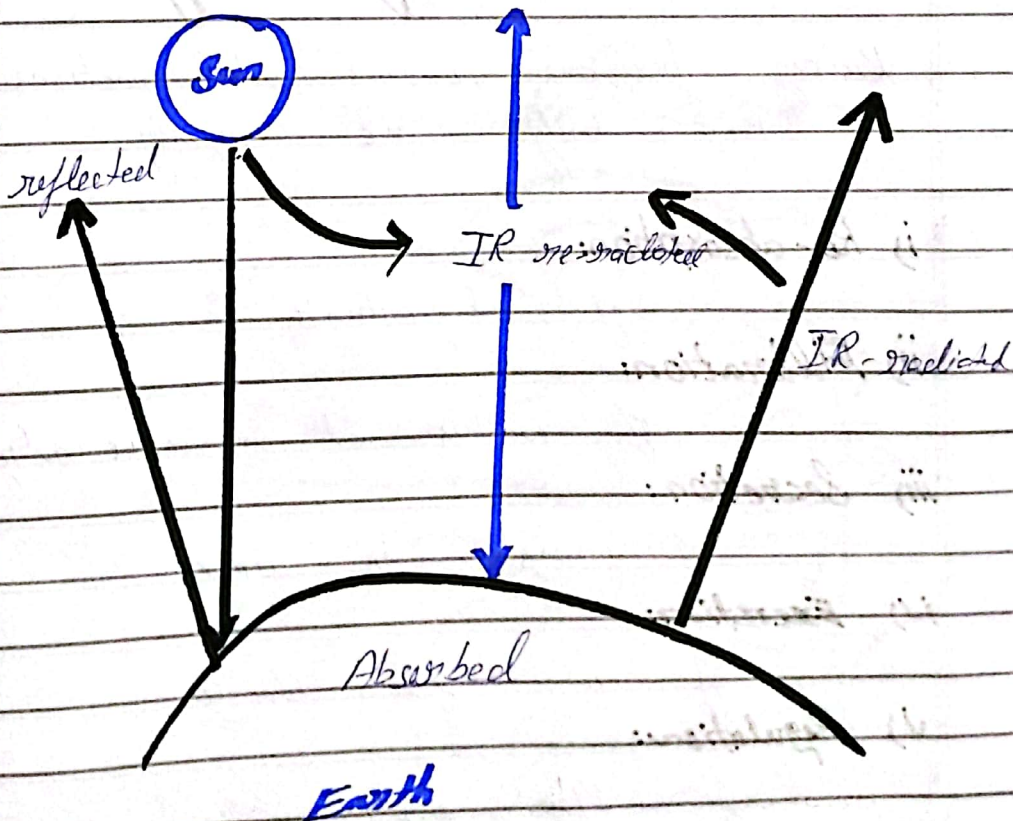 Sun
reflected
IR re-radiated
IR-radiated
Absorbed
Earth